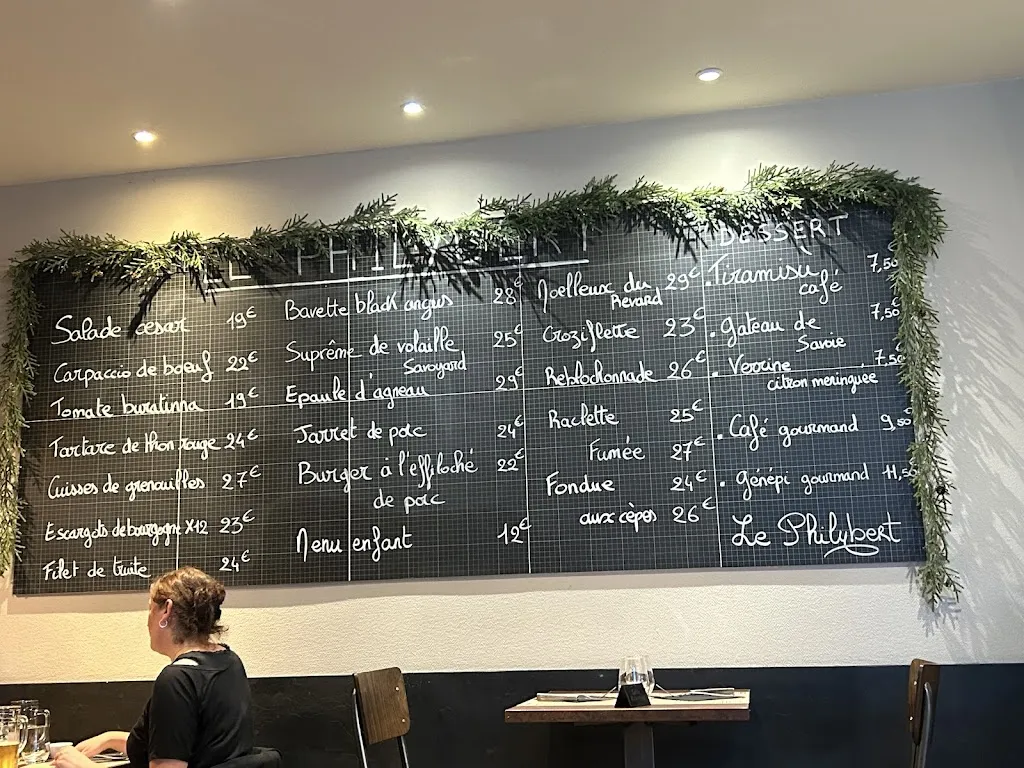 LE PHILYBERT
Salade cesar 19€
Carpaccio de bœuf 22€
Tomate buratinna 19€
Tartare de thon rouge 24€
Cuisses de grenouilles 27€
Escargots de bourgogne X12 23€
Filet de truite 24€
Bavette black angus 28€
Suprême de volaille 25€
Savoyard
Epaule d'agneau 29€
Jarret de porc 24€
Burger à l'effiloché 22€
de porc
Menu enfant 12€
Moelleux du 29€
Revard
Croziflette 23€
Reblochonnade 26€
Raclette 25€
Fumée 27€
Fondue 24€
aux cèpes 26€
DESSERT
. Tiramisu 7,50
café
. gateau de 7,50
Savoie
. Verrine 7,50
citron meringuée
. Café gourmand 9,50
. génépi gourmand 11,50
Le Philybert